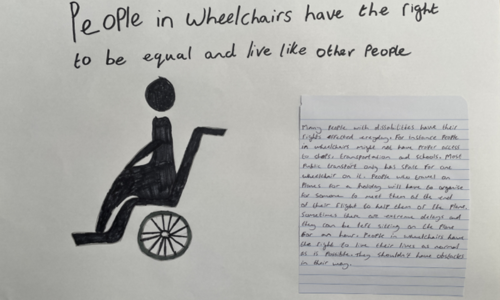 People in wheelchairs have the right
to be equal and live like other People
Many People with disabilities have their
rights everyday. For instance People
in wheelchairs might not have Proper access
to shops, transportation and schools. Most
Public transport only has space for one
wheelchair on it. People who travel on
Planes for a holiday will have to organise
for someone to meet them at the end
of their flight to help them of the Plane.
Sometimes there are extreme delays and
they can be left sitting on the Plane
for an hour. People in wheelchairs have
the right to live their lives as normal
as is Possible. they shouldn't have obstacles
in their way.